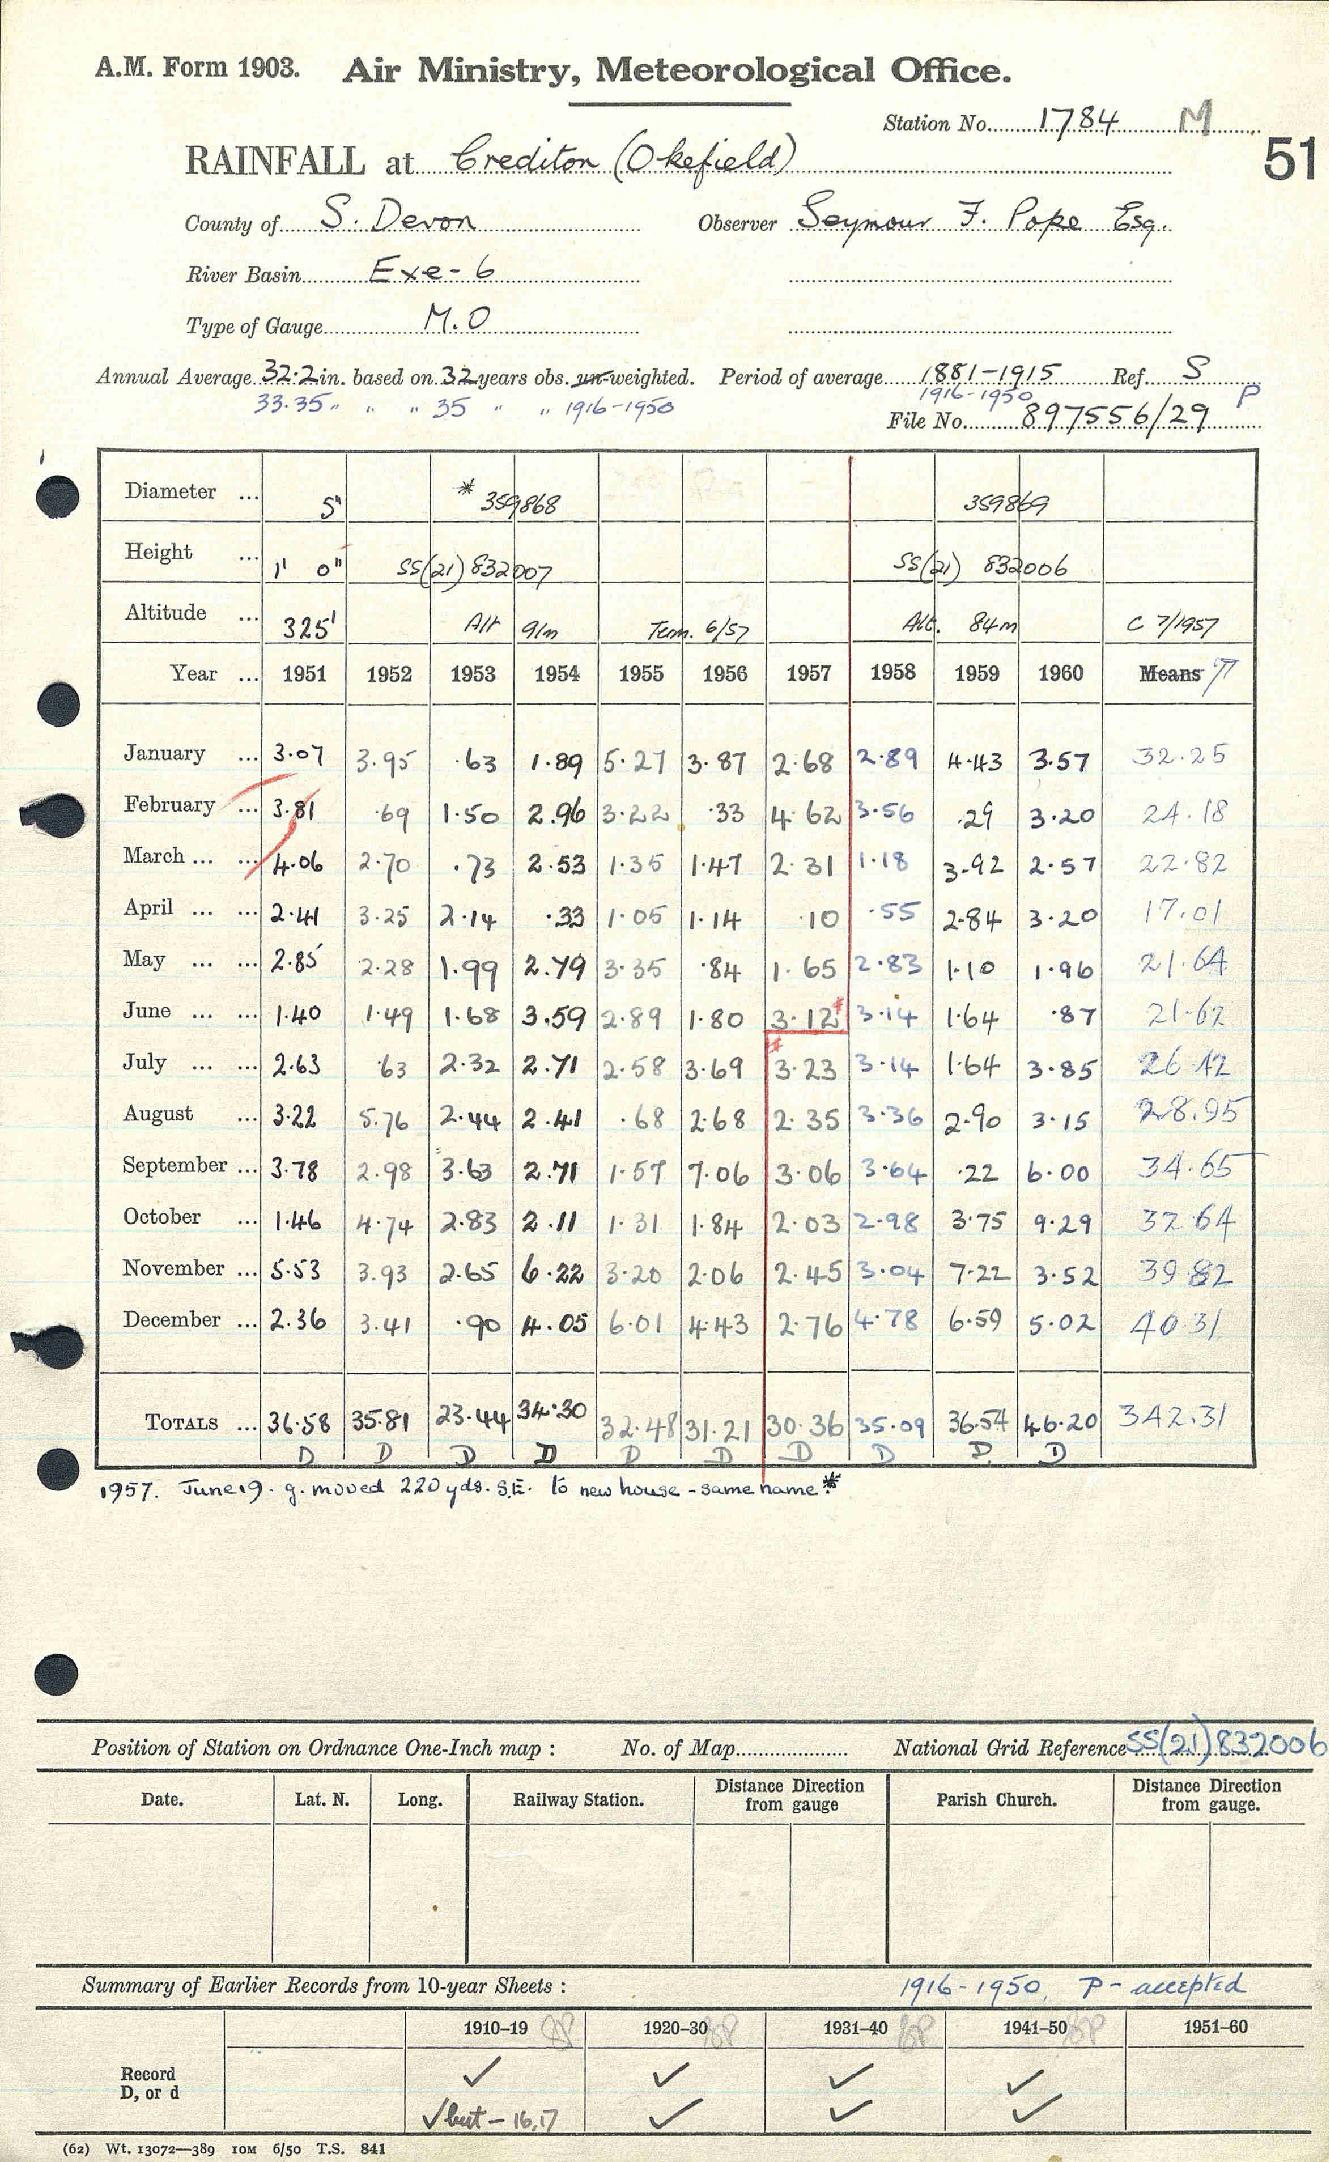 A.M. Form 1903. Air Ministry, Meteorological Office.
Station No. 1784 M
51
RAINFALL at Crediton (Okefield)
County of S. Devon Observer Seymour F. Pope Esq.
River Basin Exe-6
Type of Gauge M.O
Annual Average 32.2 in. based on 32 years obs. un-weighted. Period of average 1881-1915 Ref. S
33.35 " " " 35 " " 1916-1950 1916-1950 P
File No. 897556/29
Diameter ... 5" * 359868 359869
Height ... 1' 0" SS(21) 832007 SS(21) 832006
Altitude ... 325' Alt 91m Term. 6/57 Alt. 84m C 7/1957
Year ... 1951 1952 1953 1954 1955 1956 1957 1958 1959 1960 Means
January ... 3.07 3.95 .63 1.89 5.27 3.87 2.68 2.89 4.43 3.57 32.25
February ... 3.81 .69 1.50 2.96 3.22 .33 4.62 3.56 .29 3.20 24.18
March ... ... 4.06 2.70 .73 2.53 1.35 1.47 2.31 1.18 3.92 2.57 22.82
April ... ... 2.41 3.25 2.14 .33 1.05 1.14 .10 .55 2.84 3.20 17.01
May ... ... 2.85 2.28 1.99 2.79 3.35 .84 1.65 2.83 1.10 1.96 21.64
June ... ... 1.40 1.49 1.68 3.59 2.89 1.80 3.12 3.14 1.64 .87 21.62
July ... ... 2.63 .63 2.32 2.71 2.58 3.69 3.23 3.14 1.64 3.85 26.42
August ... 3.22 5.76 2.44 2.41 .68 2.68 2.35 3.36 2.90 3.15 28.95
September ... 3.78 2.98 3.63 2.71 1.57 7.06 3.06 3.64 .22 6.00 34.65
October ... 1.46 4.74 2.83 2.11 1.31 1.84 2.03 2.98 3.75 9.29 32.64
November ... 5.53 3.93 2.65 6.22 3.20 2.06 2.45 3.04 7.22 3.52 39.82
December ... 2.36 3.41 .90 4.05 6.01 4.43 2.76 4.78 6.59 5.02 40.31
TOTALS ... 36.58 35.81 23.44 34.30 32.48 31.21 30.36 35.09 36.54 46.20 342.31
D D D D D D D D D D
1957. June 19. g. moved 220 yds. S.E. to new house - same name *
Position of Station on Ordnance One-Inch map : No. of Map National Grid Reference SS(21)832006
Date. Lat. N. Long. Railway Station. Distance from gauge Direction Parish Church. Distance from gauge. Direction
Summary of Earlier Records from 10-year Sheets : 1916-1950. P - accepted
1910–19 1920–30 1931–40 1941–50 1951–60
Record ✓ ✓ ✓ ✓
D, or d ✓ but - 16,17 ✓ ✓ ✓
(62) Wt. 13072—389 10M 6/50 T.S. 841